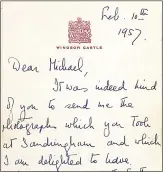 Feb. 10th
1957.
WINDSOR CASTLE
Dear Michael,
It was indeed kind
of you to send me the
photographs which you took
at Sandringham and which
I am delighted to have.